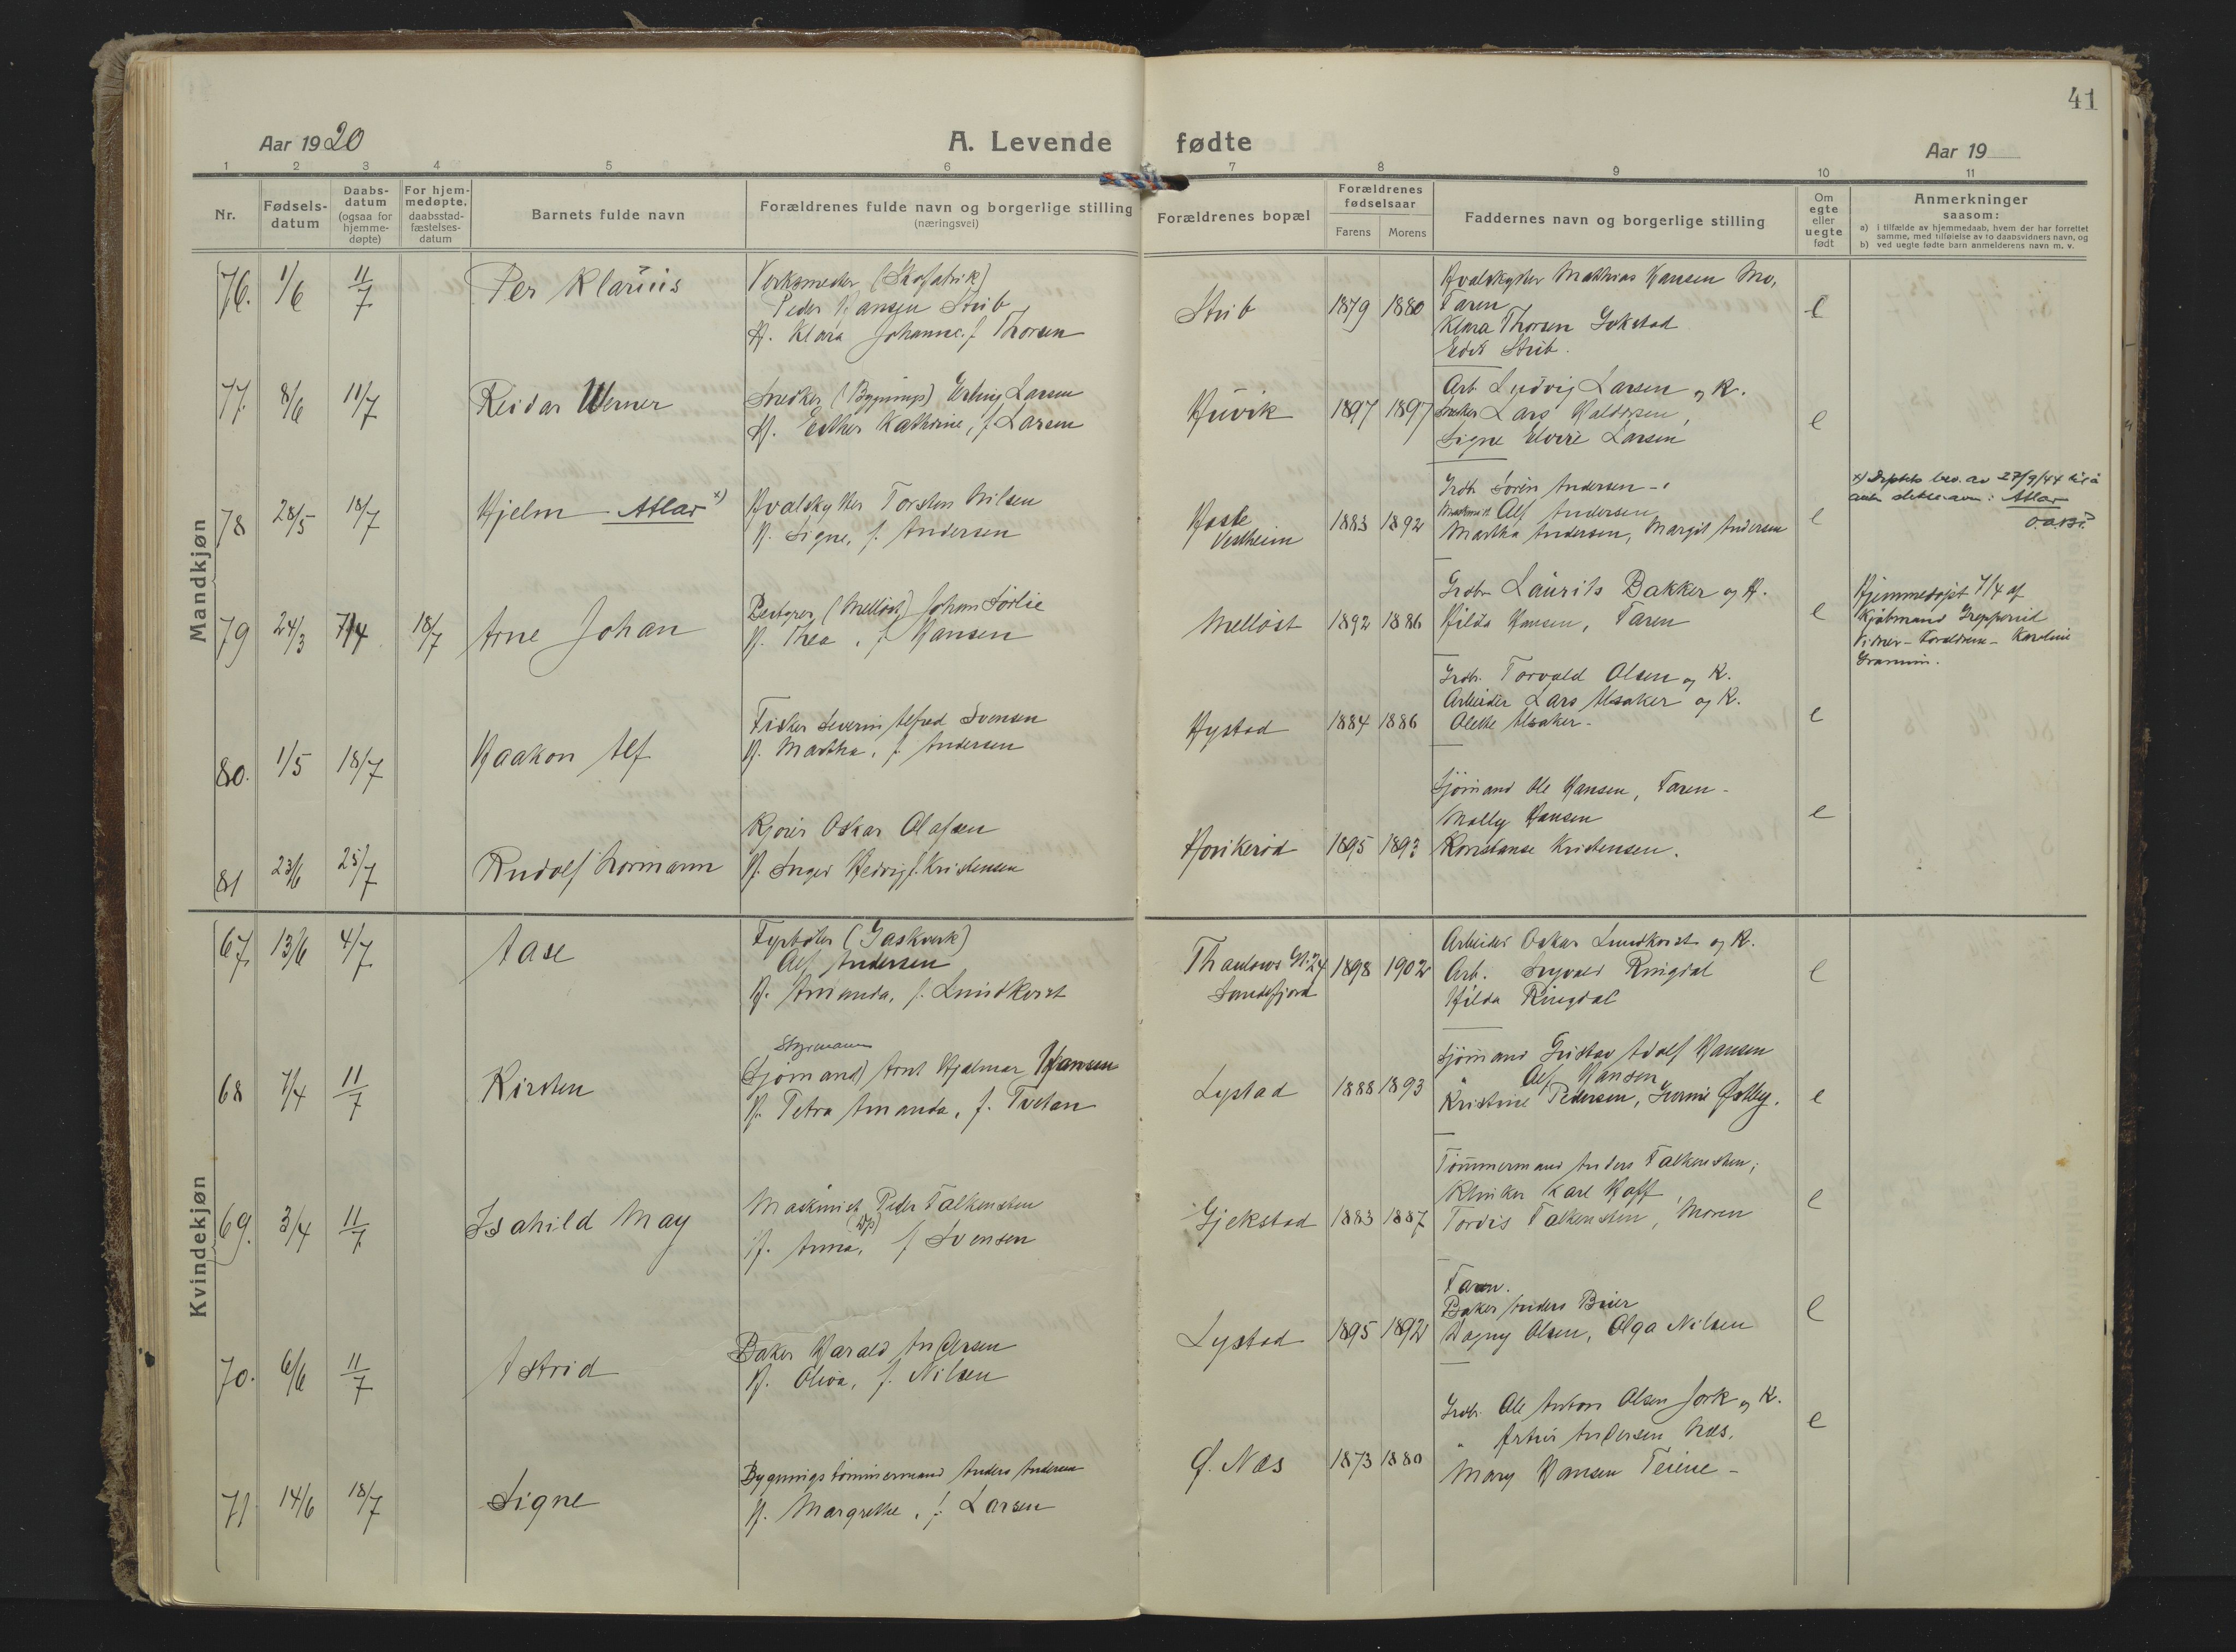 41
Aar 1920
A. Levende fødte
Aar 19
1 2 3 4 5 6 7 8 9 10 11
Nr.
Fødsels-
datum
Daabs-
datum
(ogsaa for
hjemme-
døpte)
For hjem-
medøpte.
daabsstad-
fæstelses-
datum
Barnets fulde navn
Forældrenes fulde navn og borgerlige stilling
(næringsvei)
Forældrenes bopæl
Forældrenes
fødselsaar
Farens Morens
Faddernes navn og borgerlige stilling
Om
egte
eller
uegte
født
Anmerkninger
saasom:
a) i tilfælde av hjemmedaab, hvem der har forrettet
samme, med tilføielse av to daabsvidners navn, og
b) ved uegte fødte barn anmelderens navn m. v.
Mandkjøn
76. 1/6 11/7 Per Klarius
Verksmester (Skofabrik)
Peder Hansen Strib
H. Klara Johanne f. Thorsen
Strib 1879 1880
Hvalskytter Mathias Hansen Mo,
Faren
Klara Thorsen Gokstad
Strib.
e
77. 8/6 11/7 Reidar Werner
Snedker (Bygnings) Erling Larsen
H. Esther Kathrine, f. Larsen
Huvik 1897 1897
Arb. Ludvig Larsen og K.
Snedker Lars Haldorsen,
Signe Elvire Larsen
e
78 28/5 18/7 Hjelm Atlar x)
Hvalskytter Torsten Nilsen
H. Signe, f. Andersen
Haste
Vestheim 1883 1892
Grdbr. Sørin Andersen -
Maskinist Alf Andersen
Martha Andersen, Margit Andersen
e
x) Deptets bev. av 27/9/44 til å
anta døpenavn: Atlar
79 24/3 7/4 18/7 Arne Johan
Bestyrer (Melløst) Johan Sørlie
H. Thea, f. Hansen
Melløst 1892 1886
Grdbr. Laurits Bakker og H.
Hilda Hansen, Faren
e
Hjemmedøpt 7/4 af
Kjøbmand
Vidner - Forældrene - Karoline
80. 1/5 18/7 Haakon Alf
Fisker Severin Alfred Svensen
H. Martha, f. Andersen
Hystad 1884 1886
Grdbr. Torvald Olsen og K.
Arbeider Lars Aasaker og K.
Alethe Aasaker -
e
81 23/6 25/7 Rudolf Normann
Kjører Oskar Olafsen
H. Inger Hedvig f. Kristensen
Hovikerød 1895 1893
Sjømand Ole Hansen, Faren -
Molly Hansen
Konstanse Kristensen.
e
Kvindekjøn
67. 13/6 4/7 Aase
Fyrbøter (Gaskverk)
Alf Andersen
H. Amanda, f. Lundkvist
Thaulows Gt. 24
Sandefjord 1898 1902
Arbeider Oskar Lundkvist og K.
Arb. Sigvald Ringdal
Hilda Ringdal
e
68 7/4 11/7 Kirsten
Styrmann
(Sjømand) Arnt Hjalmar Hansen
H. Petra Amanda, f. Tvetan
Lystad 1888 1893
Sjømand Gustav Adolf Hansen
" Alf Hansen
Kristine Pedersen, Gunni Østby.
e
69. 3/4 11/7 Isahild May
Maskinist Peder Falkensten
H. Anna, f. Svensen
Gjekstad 1883 1887
Tømmermand Anders Falkensten,
Klinker Karl Hoff
Tordis Falkensten, Moren
e
70. 6/6 11/7 Astrid
Baker Harald Andersen
H. Oliva, f. Nilsen
Lystad 1895 1892
Faren.
Baker Anders Bruer
Dagny Olsen, Olga Nilsen
e
71 14/6 18/7 Signe
Bygningstømmermand Anders Andersen
H. Margrethe, f. Larsen
Ø. Næs 1873 1880
Grdbr. Ole Anton Olsen Jork og K.
" Artur Andersen Næs.
Mary Hansen Teiene -
e